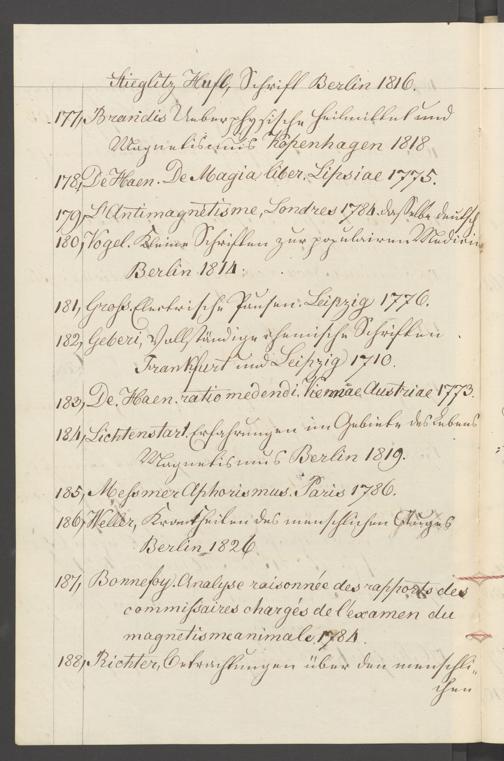 Stieglitz Hufl, Schrift Berlin 1816.
177, Brandis Ueber physische Heilmittel und
Magnetismus Kopenhagen 1818
178, De Haen. De Magia liber. Lipsiae 1775.
179, L'Antimagnetisme, Londres 1784. dasselbe deutsch
180, Vogel. Kleine Schriften zur populairen Medicin
Berlin 1814.
181, Groß. Electrische Pausen. Leipzig 1776.
182, Geberi, Vollständige chemische Schriften
Frankfurt und Leipzig 1710.
183, De Haen. ratio medendi. Viennae Austriae 1773.
184, Lichtenstädt. Erfahrungen im Gebiete des Lebens
Magnetismus Berlin 1819.
185, Meßmer Aphorismus. Paris 1786.
186, Weller, Krankheiten des menschlichen Auges
Berlin 1826
187, Bonnefoy. Analyse raisonnée des rapports des
commißaires chargés de l'examen du
magnetisme animale 1784.
188, Richter, Betrachtungen über den menschli-
chen